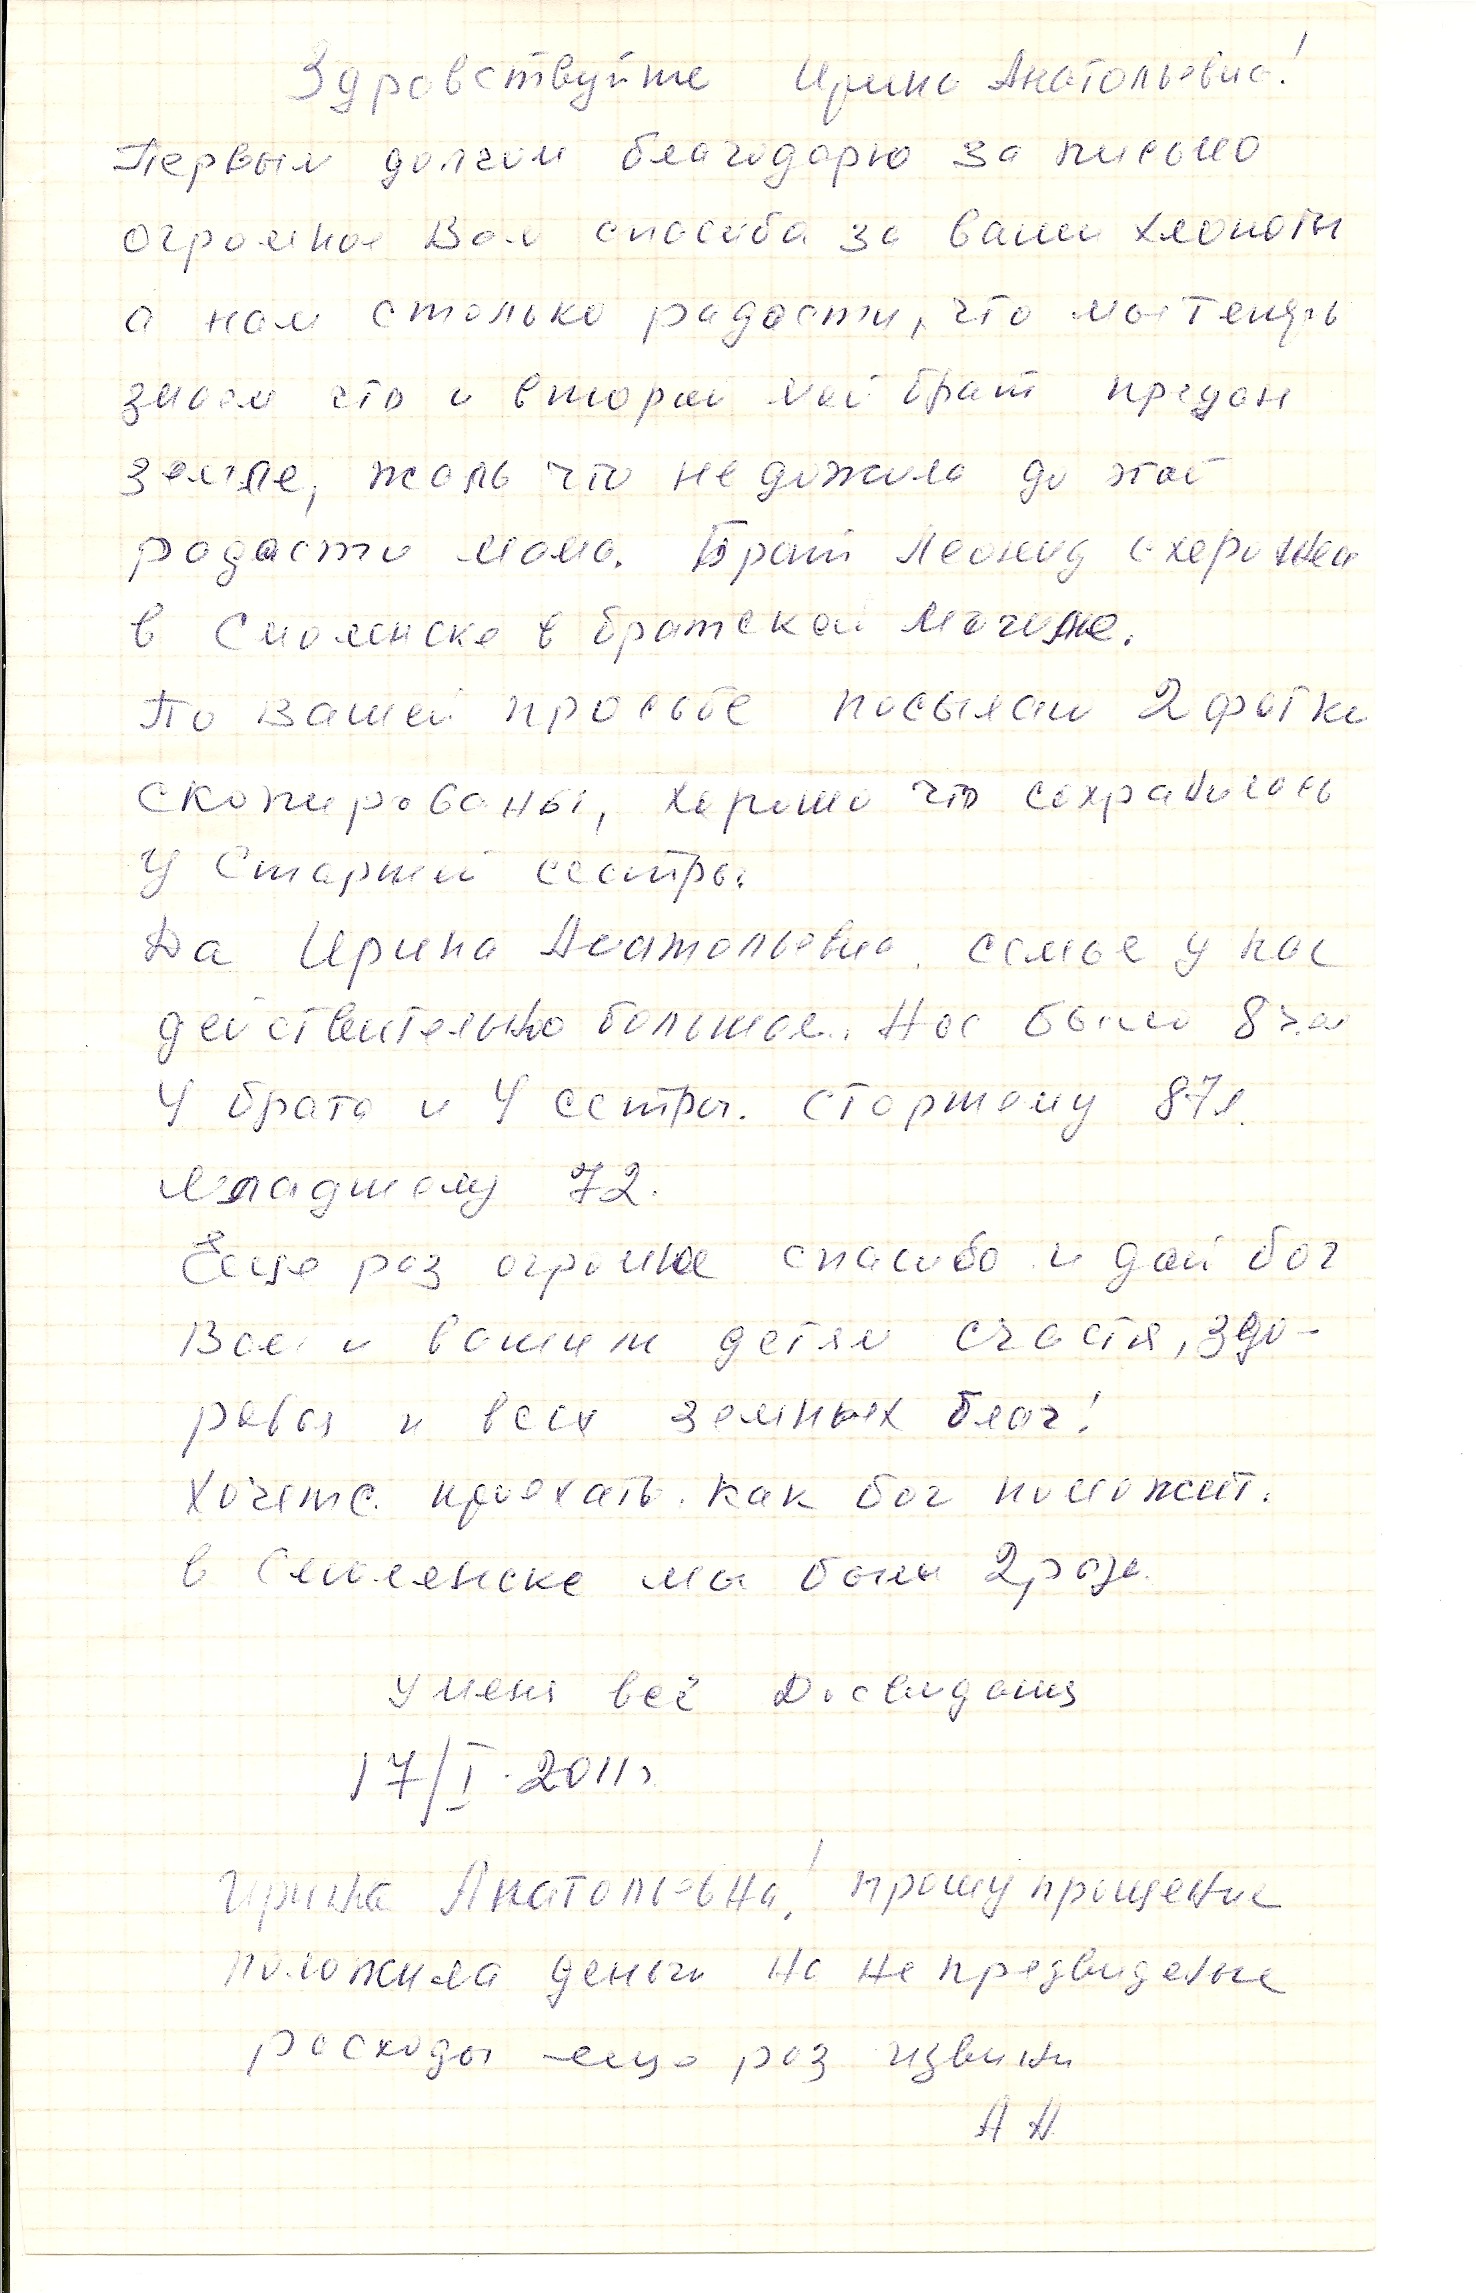 Здравствуйте Ирина Анатольевна!
Первым долгом благодарю за письмо
огромное Вам спасиба за ваши хлопоты
а нам столько радости, что мы теперь
знаем что и второй мой брат предан
земле, жаль что не дожила до этой
радости мама. Брат Леонид схоронен
в Смоленске в братской могиле.
По вашей прособе посылаю 2 фотки
скопированы, хорошо что сохранились
У Старшей сестры.
Да Ирина Анатольевна. семье у нас
действительно большая. Нас было 8 чел
4 брата и 4 сестры. старшому 87 л.
младшому 72.
Еще раз огромное спасибо и дай бог
Вам и вашим детям счастя, здо-
ровья и всех земных благ!
Хочетс. приехать. как бог поможет.
в Смоленске мы были 2 раза.
У меня всё Досвидания
17/I. 2011г
Ирина Анатольевна! прошу прощение
положила деньги на не предвиденые
расходы еще раз извини
А А